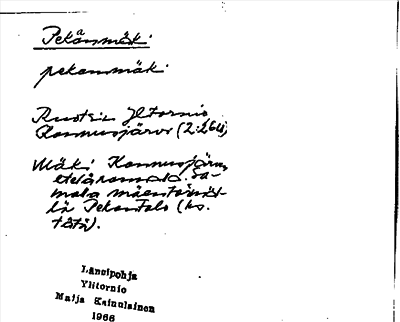 Pekanmäki
pekanmäki
Ruotsin Ylitornio
Konnusjärvi (2:264)
Mäki Konnusjärven
etelärannalla. Sa-
malla mäentörmäl-
lä Pekantalo (ks.
tätä).
Länsipohja
Ylitornio
Maija Kainulainen
1966